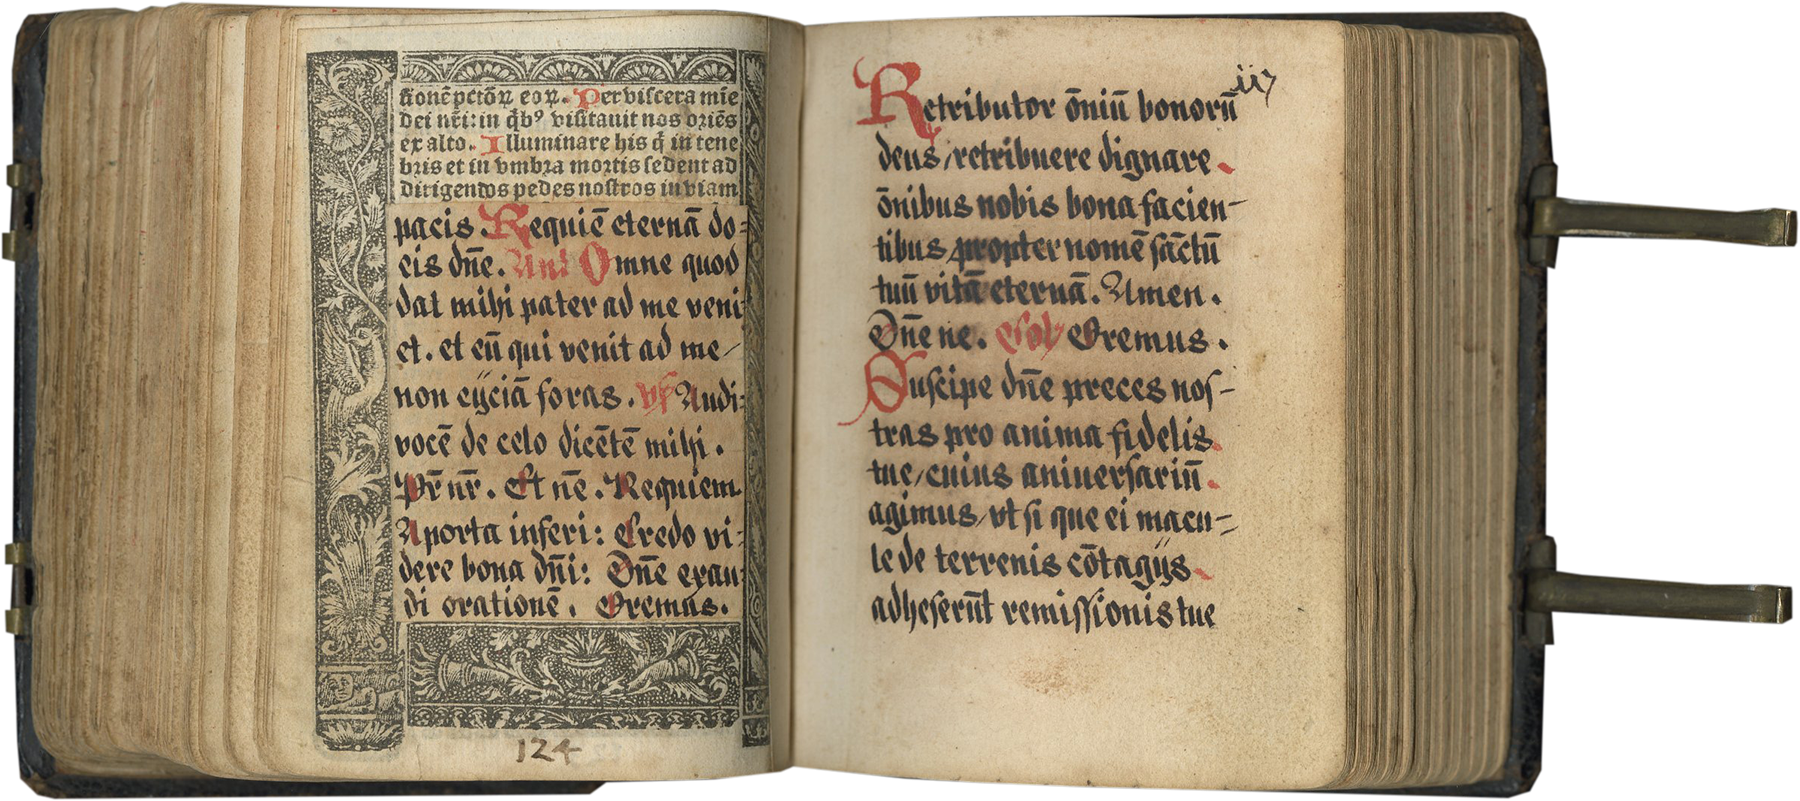 sionē pctōꝝ eoꝝ. Per viscera mie
dei nr̄i: in qͥbꝰ visitauit nos oriēs
ex alto. Illuminare his q̄ in tene
bris et in vmbra mortis sedent ad
dirigendos pedes nostros in viam
pacis. Requiē eternā do=
eis dn̄e. Ant Omne quod
dat mihi pater ad me veni=
et. et eū qui venit ad me/
non eijciā foras. vs Audi=
vocē de celo dicētē mihi.
Pr̄ nr̄. Et nē. Requiem
A porta inferi: Credo vi=
dere bona dn̄i: Dn̄e exau=
di orationē. Oremus.
124
117
Retributor ōniū bonorū
deus/retribuere dignare
ōnibus nobis bona facien-
tibus/propter nomē sāctū
tuū vitā eternā. Amen.
Dn̄e ne. Oremus.
Suscipe dn̄e preces nos-
tras pro anima fidelis
tue/cuius aniuersariū
agimus/vt si que ei macu=
le de terrenis cōtagijs
adheserūt remissionis tue